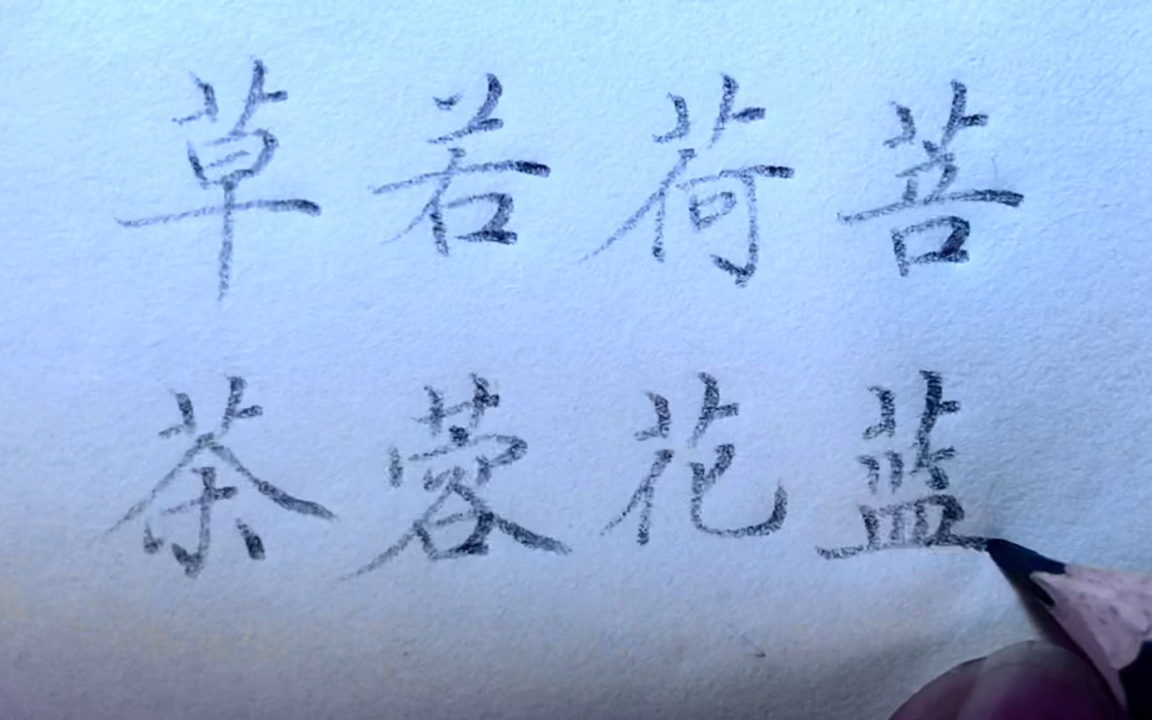 草若荷菩
茶蓉花蓝